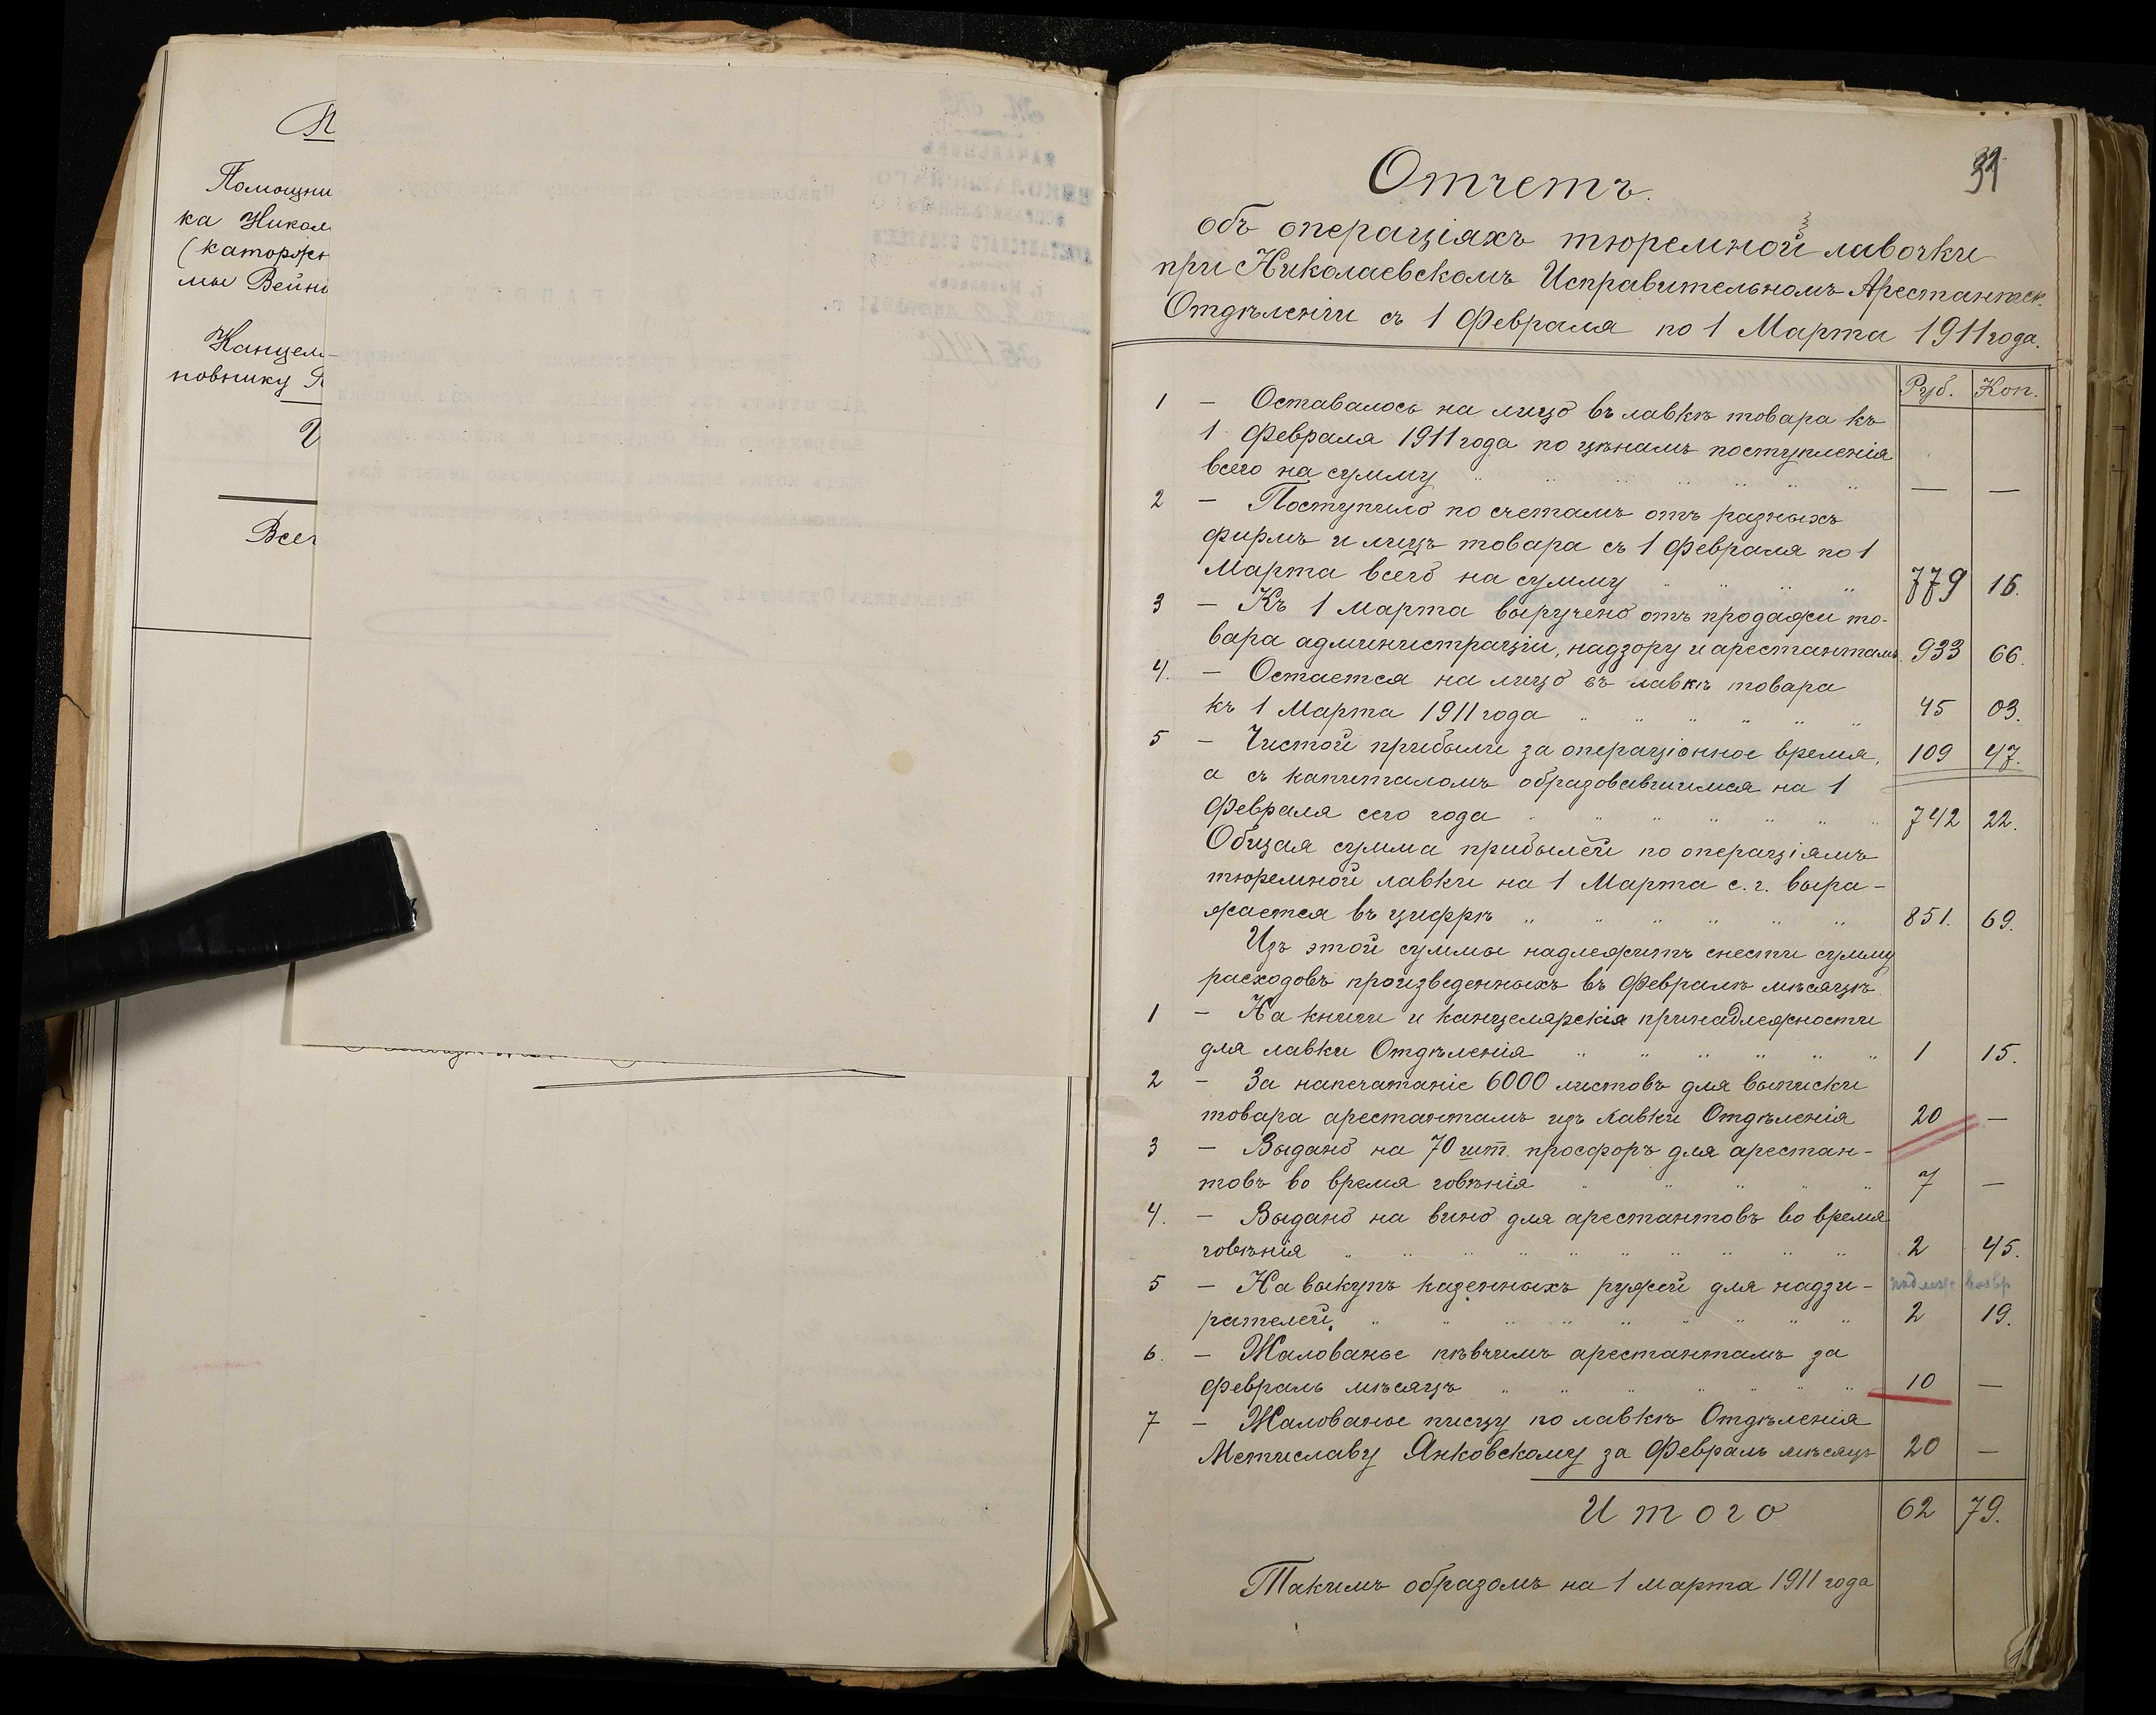 Помощни
ка Никол
(каторжн
мы Вейн
Канцел-
повнику
Всег
Отчетъ.
объ операціяхъ тюремной лавочки
при Николаевскомъ Исправительномъ Арестантск.
Отдѣленіи съ 1 Февраля по 1 Марта 1911 года.
Руб. Коп.
1 – Оставалось на лицо въ лавкѣ товара къ
1 Февраля 1911 года по цѣнамъ поступленія
всего на сумму „ „ „ „ „ „ „ — —
2 – Поступило по счетамъ отъ разныхъ
фирмъ и лицъ товара съ 1 Февраля по 1
Марта всего на сумму „ „ „ „ 779 16.
3 – Къ 1 Марта выручено отъ продажи то-
вара администраціи, надзору и арестантамъ. 933 66.
4. – Остается на лицо въ лавкѣ товара
къ 1 Марта 1911 года „ „ „ „ „ „ 45 03.
5 – Чистой прибыли за операціонное время, 109 47.
а съ капиталомъ образовавшимся на 1
Февраля сего года „ „ „ „ „ „ „ 742 22.
Общая сумма прибылей по операціямъ
тюремной лавки на 1 Марта с. г. выра-
жается въ цифрѣ „ „ „ „ „ „ 851. 69.
Изъ этой суммы надлежитъ снести сумму
расходовъ произведенныхъ въ Февралѣ мѣсяцѣ
1 – На книги и канцелярскія принадлежности
для лавки Отдѣленія „ „ „ „ „ „ 1 15.
2 – За напечатаніе 6000 листовъ для выписки
товара арестантамъ изъ лавки Отдѣленія 20 —
3 – Выдано на 70 шт. просфоръ для арестан-
товъ во время говѣнія „ „ „ „ „ 7 —
4. – Выдано на вино для арестантовъ во время
говѣнія „ „ „ „ „ „ „ „ „ 2 45.
5 – На выкупъ казенныхъ ружей для надзи-
рателей. „ „ „ „ „ „ „ „ 2 19.
6. – Жалованье пѣвчимъ арестантамъ за
Февраль мѣсяцъ „ „ „ „ „ „ „ 10 —
7 – Жалованье писцу по лавкѣ Отдѣленія
Мстиславу Янковскому за Февраль мѣсяцъ 20 —
Итого 62 79.
Такимъ образомъ на 1 марта 1911 года